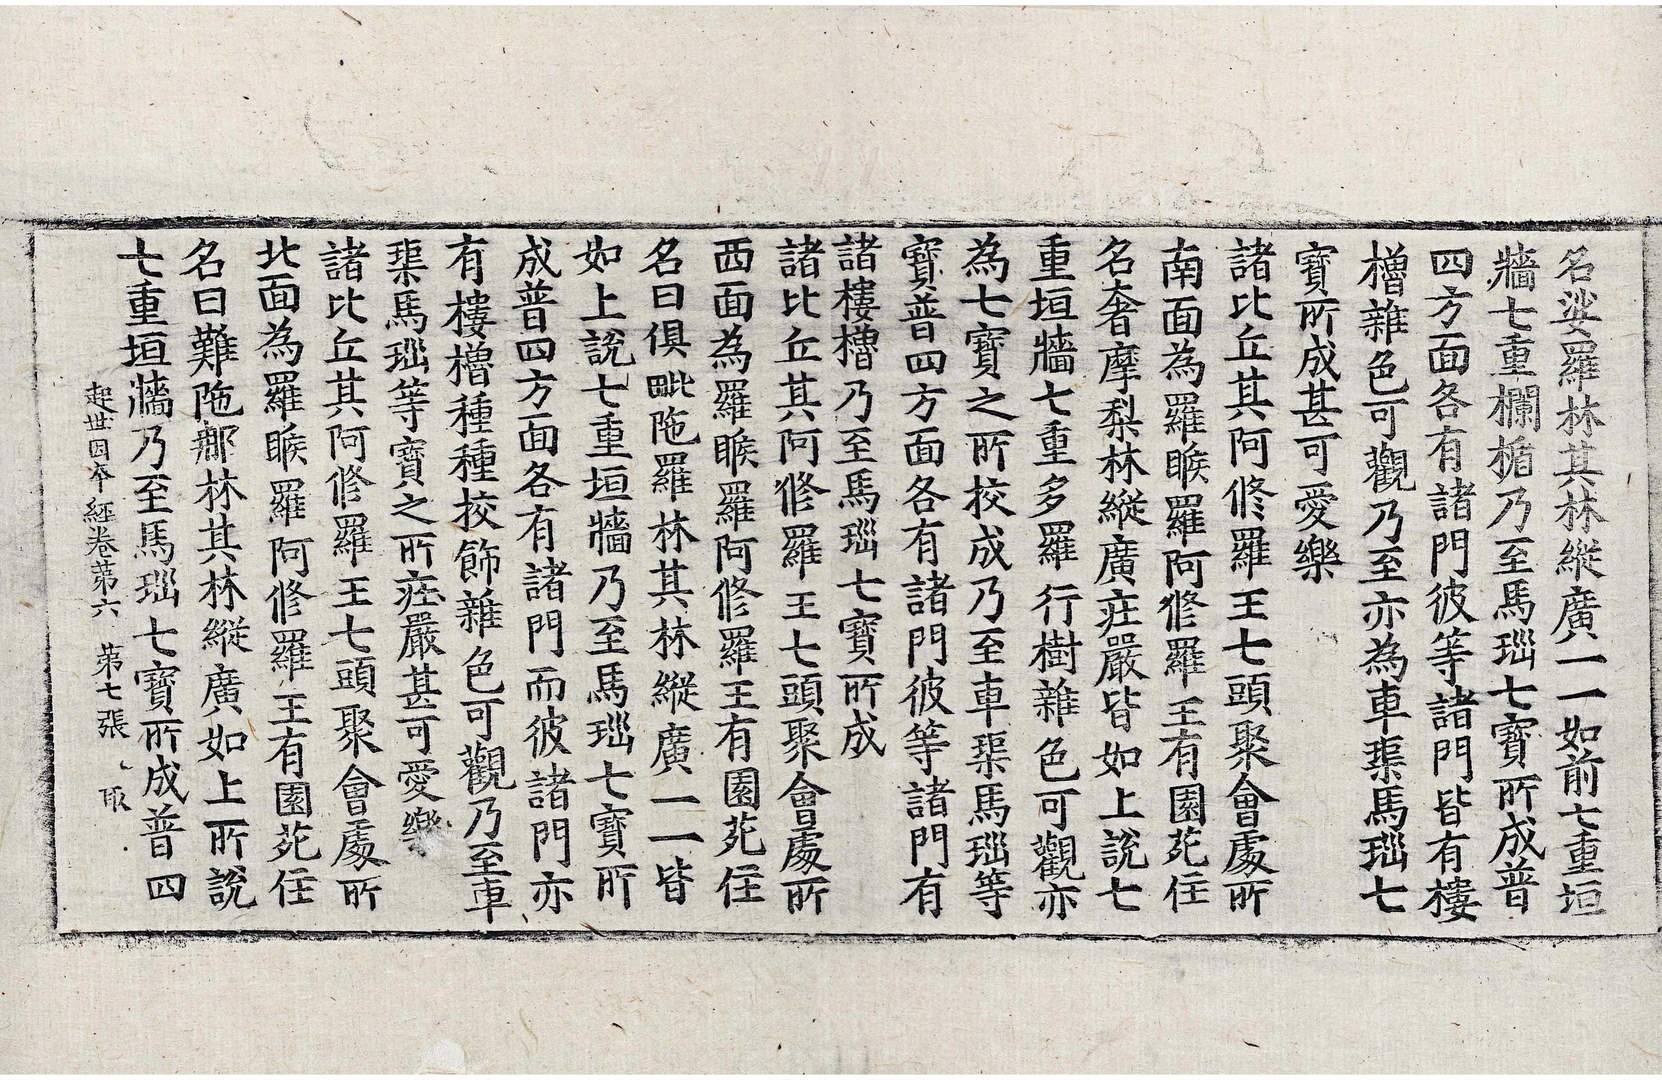 名娑羅林其林縱廣一一如前七重垣
牆七重欄楯乃至馬瑙七寶所成普
四方面各有諸門彼等諸門皆有樓
櫓雜色可觀乃至亦為車𤦲馬瑙七
寶所成甚可愛樂
諸比丘其阿修羅王七頭聚會處所
南面為羅睺羅阿修羅王有園苑住
名奢摩梨林縱廣庄嚴皆如上說七
重垣牆七重多羅行樹雜色可觀亦
為七寶之所校成乃至車𤦲馬瑙等
寶普四方面各有諸門彼等諸門有
諸樓櫓乃至馬瑙七寶所成
諸比丘其阿修羅王七頭聚會處所
西面為羅睺羅阿修羅王有園苑住
名曰俱毗陁羅林其林縱廣一一皆
如上說七重垣牆乃至馬瑙七寶所
成普四方面各有諸門而彼諸門亦
有樓櫓種種校飾雜色可觀乃至車
𤦲馬瑙等寶之所庄嚴甚可愛樂
諸比丘其阿修羅王七頭聚會處所
北面為羅睺羅阿修羅王有園苑住
名曰難陁那林其林縱廣如上所說
七重垣牆乃至馬瑙七寶所成普四
起世因夲經卷第六 第七張 取